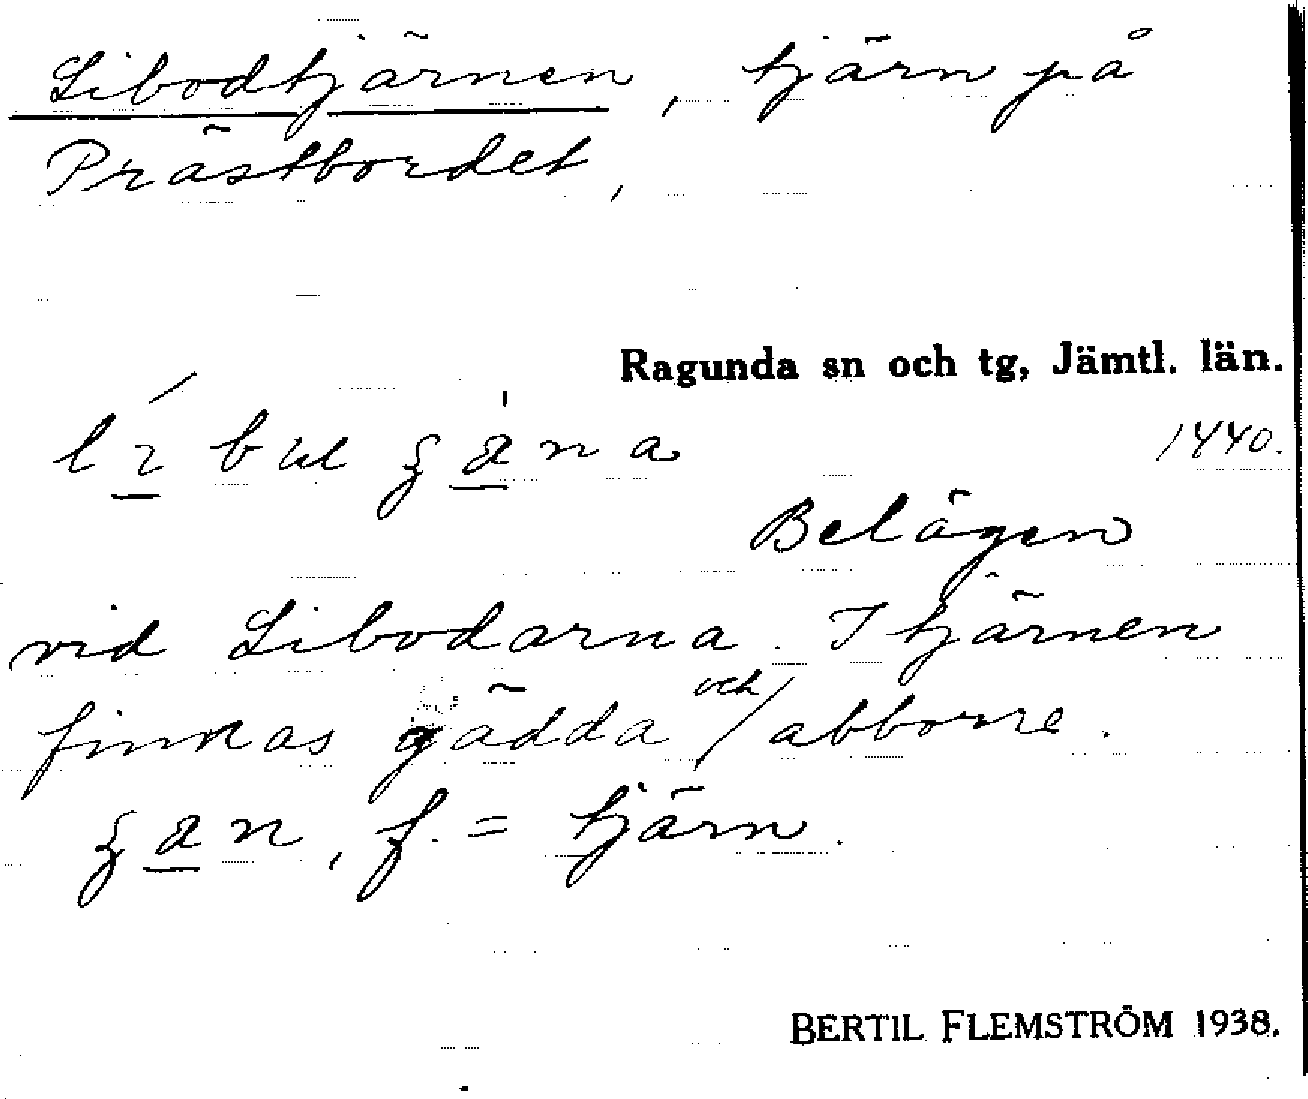 Libodtjärnen, tjärn på
Prästbordet,
Ragunda sn och tg, Jämtl. län.
1440.
Belägen
vid Libodarna. I tjärnen
finnas gädda och abborre.
f. = tjärn.
BERTIL FLEMSTRÖM 1938.